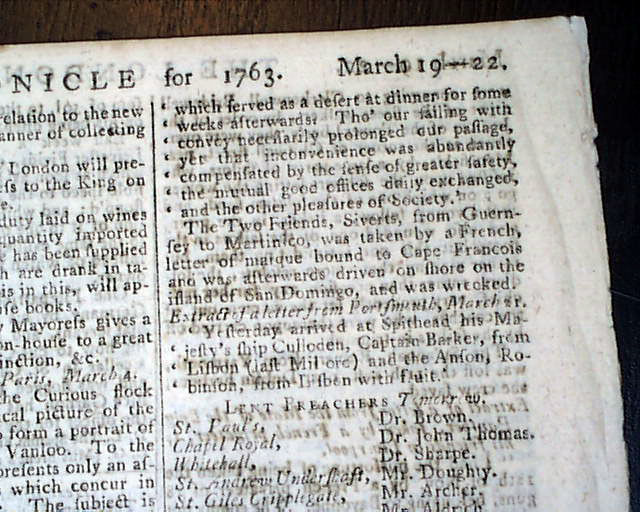 NICLE for 1763. March 19—22.
elation to the new
anner of collecting
London will pre-
ſs to the King on
e.
duty laid on wines
quantity imported
e has been ſupplied
h are drank in ta-
is in this, will ap-
uſe books.
y Mayoreſs gives a
on-houſe to a great
inction, &c.
Paris, March 4.
the Curious flock
cal picture of the
o form a portrait of
Vanloo. To the
preſents only an aſ-
s which concur in
The ſubject is
‘ which ſerved as a deſert at dinner for ſome
‘ weeks afterwards: Tho' our ſailing with
‘ convoy neceſſarily prolonged our paſſage,
‘ yet that inconvenience was abundantly
‘ compenſated by the ſenſe of greater ſafety,
‘ the mutual good offices daily exchanged,
‘ and the other pleaſures of Society.’
The Two Friends, Siverts, from Guern-
ſey to Martinico, was taken by a French
letter of marque bound to Cape Francois
and was afterwards driven on ſhore on the
iſland of San Domingo, and was wrecked.
Extract of a letter from Portſmouth, March 21.
‘ Yeſterday arrived at Spithead his Ma-
‘ jeſty's ſhip Culloden, Captain Barker, from
‘ Liſbon (laſt Mil ore) and the Anſon, Ro-
‘ binſon, from Liſbon with fruit.’
LENT PREACHERS Tomorrow.
St. Paul's, Dr. Brown.
Chapel Royal, Dr. John Thomas.
Whitehall, Dr. Sharpe.
St. Andrew Underſhaft, Mr. Doughty.
St. Giles Cripplegate, Mr. Archer.
Mr. Aldrich